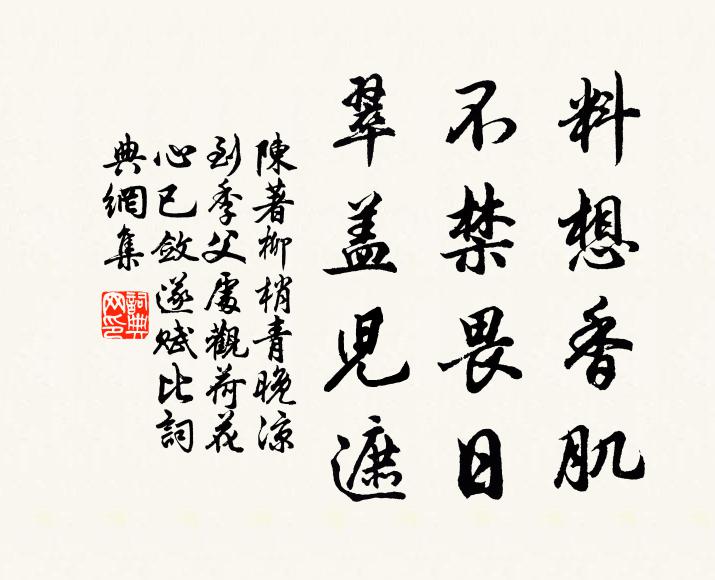 料想香肌
不禁畏日
翠盖児遮
陳著柳梢青晚涼
到季父處觀荷花
心已斂遂赋比詞
典網集
詞典网印